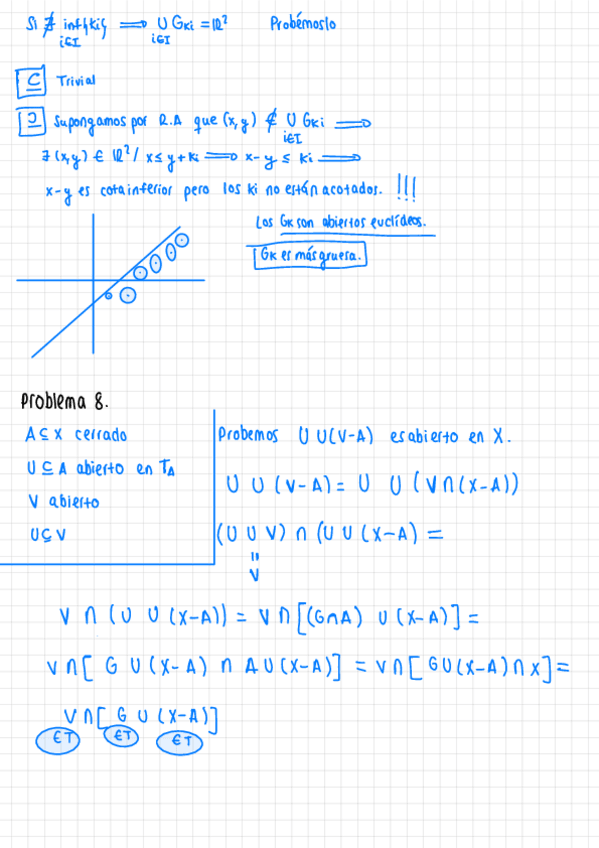 Si ∄ inf{ki} ⟹ ∪ Gki = ℝ² Probémoslo
i∈I i∈I
⊆ Trivial
⊇ Supongamos por R.A que (x,y) ∉ ∪ Gki ⟹
i∈I
∃ (x,y) ∈ ℝ² / x ≤ y + ki ⟹ x - y ≤ ki ⟹
x - y es cota inferior pero los ki no están acotados. !!!
Los Gk son abiertos euclídeos.
Gk es más gruesa.
Problema 8.
A ⊆ X cerrado
U ⊆ A abierto en TA
V abierto
U ⊆ V
Probemos U ∪ (V-A) es abierto en X.
U ∪ (V-A) = U ∪ (V ∩ (X-A))
(U ∪ V) ∩ (U ∪ (X-A) =
=
V
V ∩ (U ∪ (X-A)) = V ∩ [(G∩A) ∪ (X-A)] =
V ∩ [ G ∪ (X-A) ∩ A ∪ (X-A)] = V ∩ [ G ∪ (X-A) ∩ X] =
V ∩ [ G ∪ (X-A)]
∈T ∈T ∈T